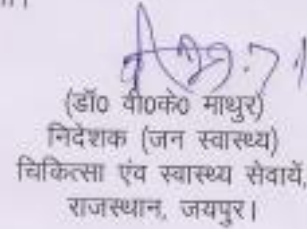 (डॉ0 वी0के0 माथुर)
निदेशक (जन स्वास्थ्य)
चिकित्सा एंव स्वास्थ्य सेवायें,
राजस्थान, जयपुर।